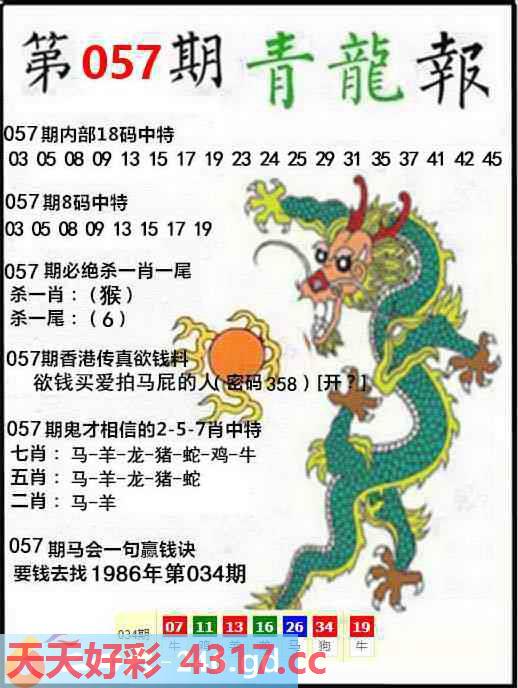 第057期青龍報
057期内部18码中特
03 05 08 09 13 15 17 19 23 24 25 29 31 35 37 41 42 45
057期8码中特
03 05 08 09 13 15 17 19
057期必绝杀一肖一尾
杀一肖：(猴)
杀一尾：(6)
057期香港传真欲钱料
欲钱买爱拍马屁的人(密码358)[开?]
057期鬼才相信的2-5-7肖中特
七肖：马-羊-龙-猪-蛇-鸡-牛
五肖：马-羊-龙-猪-蛇
二肖：马-羊
057期马会一句赢钱诀
要钱去找1986年第034期
034期 07 11 13 16 26 34 19
牛 马 狗 牛
天天好彩 4317.cc